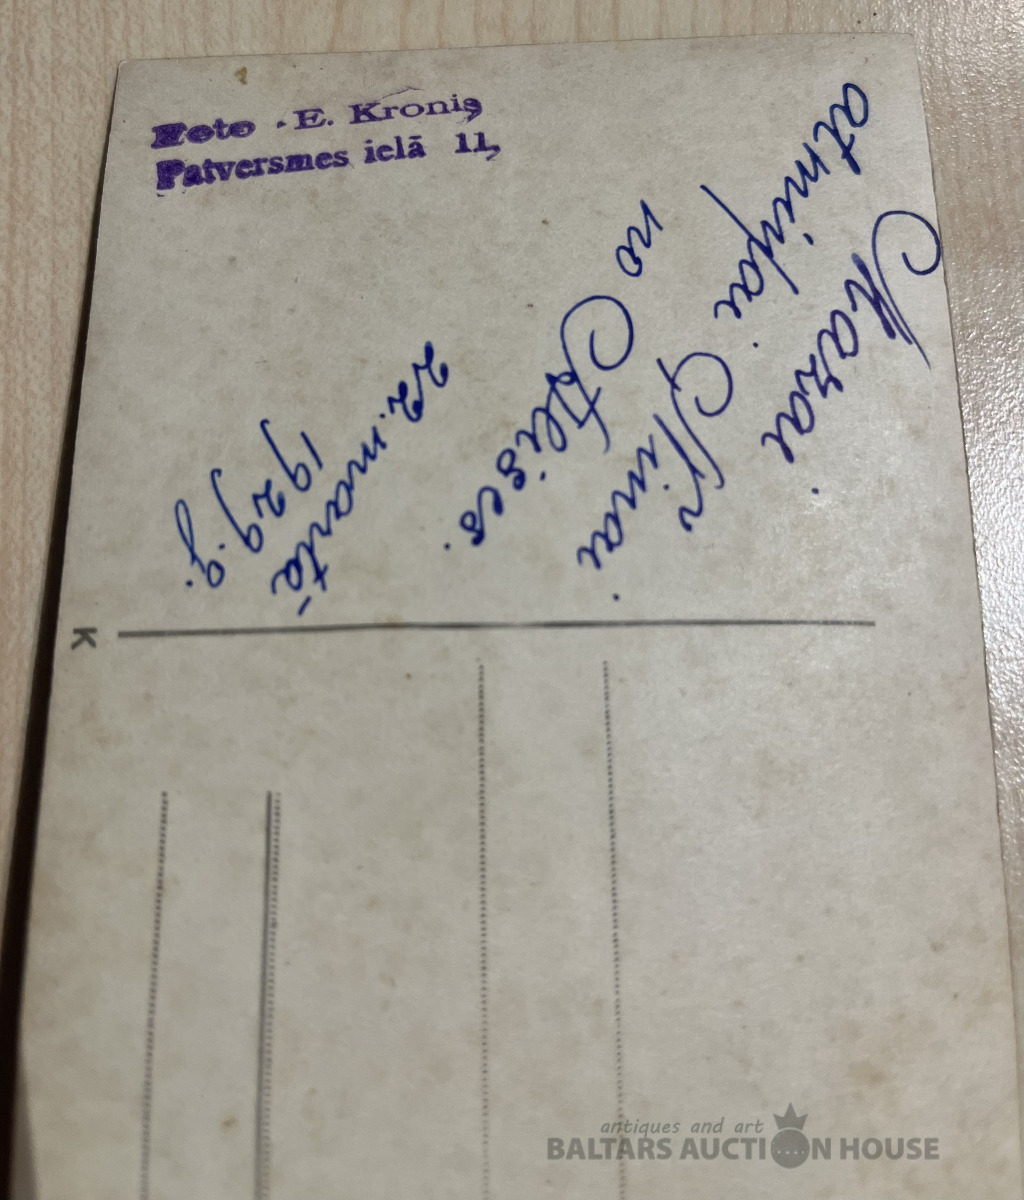 Foto . E. Kronis,
Patversmes ielā 11,
Mazai
atmiņai Ninai
no Alises.
22. martā
1929.g.
K
antiques and art
BALTARS AUCTION HOUSE